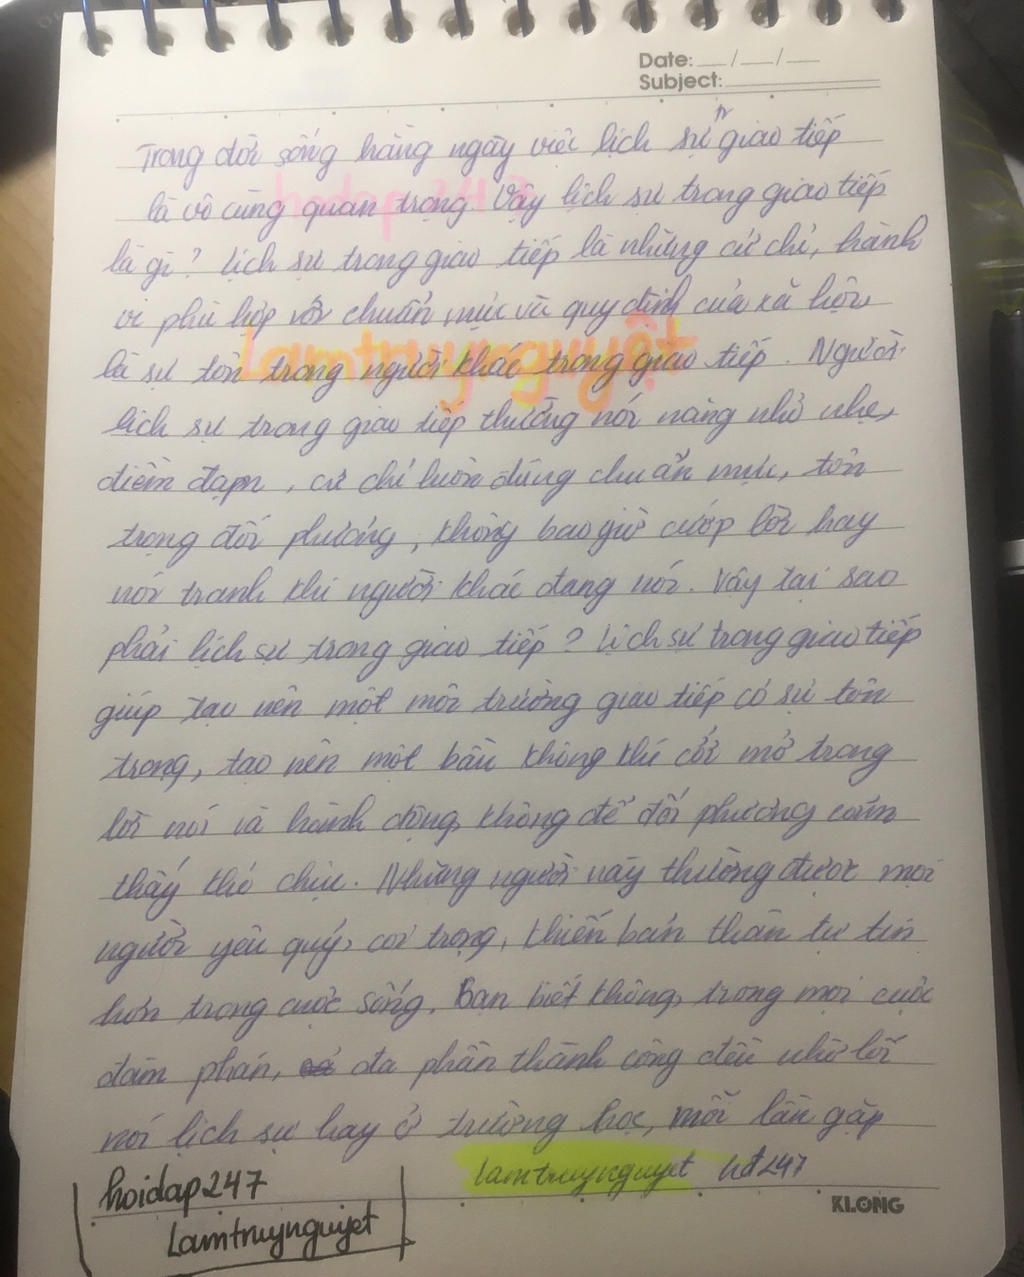 Date: __/__/__
Subject:
Trong đời sống hằng ngày việc lịch sự tr giao tiếp
là vô cùng quan trọng. Vậy lịch sự trong giao tiếp
là gì? Lịch sự trong giao tiếp là những cử chỉ, hành
vi phù hợp với chuẩn mực và quy định của xã hội,
là sự tôn trong người khác trong giao tiếp. Người
lịch sự trong giao tiếp thường nói năng nhỏ nhẹ,
điềm đạm, cử chỉ luôn đúng chuẩn mực, tôn
trọng đối phương, không bao giờ cướp lời hay
nói tranh khi người khác đang nói. Vậy tại sao
phải lịch sự trong giao tiếp? Lịch sự trong giao tiếp
giúp tạo nên một môi trường giao tiếp có sự tôn
trọng, tạo nên một bầu không khí cởi mở trong
lời nói và hành động, không để đối phương cảm
thấy khó chịu. Những người này thường được mọi
người yêu quý, coi trọng, khiến bản thân tự tin
hơn trong cuộc sống. Bạn biết không, trong mọi cuộc
đàm phán, đa phần thành công đều nhờ lối
nói lịch sự hay ở trường học, mỗi lần gặp
lamtruynguyet hđ247
hoidap247
Lamtruynguyet
KLONG